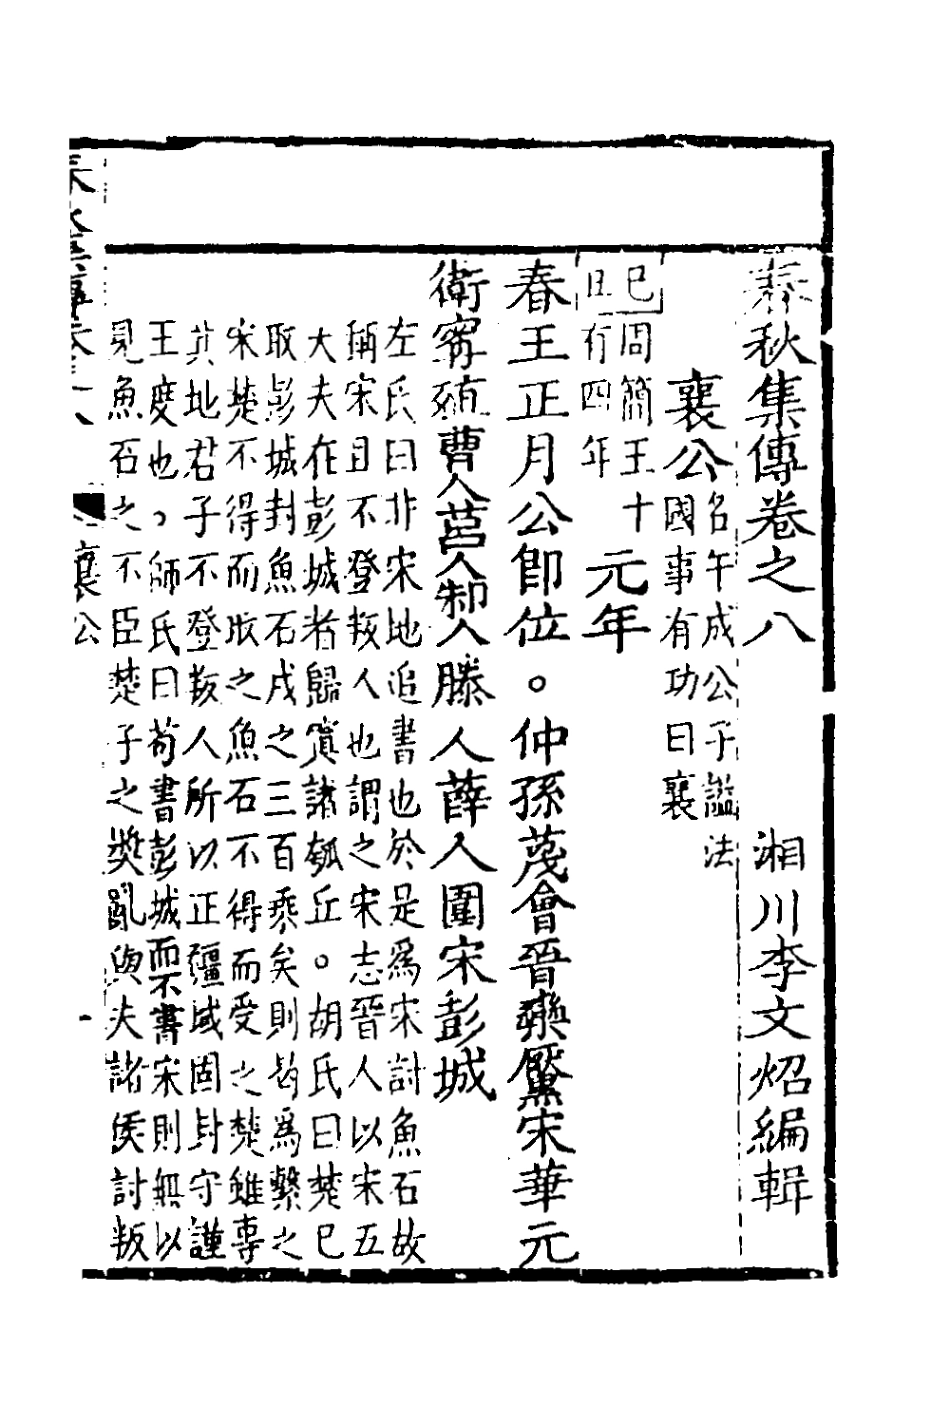 春秋集傳卷之八 湘川李文炤編輯
襄公 名午成公子謚法
國事有功曰襄
己丑 周簡王十
有四年 元年
春王正月公卽位。仲孫蔑會晉欒黶宋華元
衛甯殖曹人莒人邾人滕人薛人圍宋彭城
左氏曰非宋地追書也於是爲宋討魚石故
稱宋且不登叛人也謂之宋志晉人以宋五
大夫在彭城者歸寘諸瓠丘。胡氏曰楚已
取彭城封魚石戍之三百乘矣則曷爲繫之
宋楚不得而取之魚石不得而受之楚雖專
其地君子不登叛人所以正疆域固封守謹
王度也。師氏曰苟書彭城而不書宋則無以
見魚石之不臣楚子之奬亂與夫諸侯討叛
春秋集傳卷之八 襄公 一